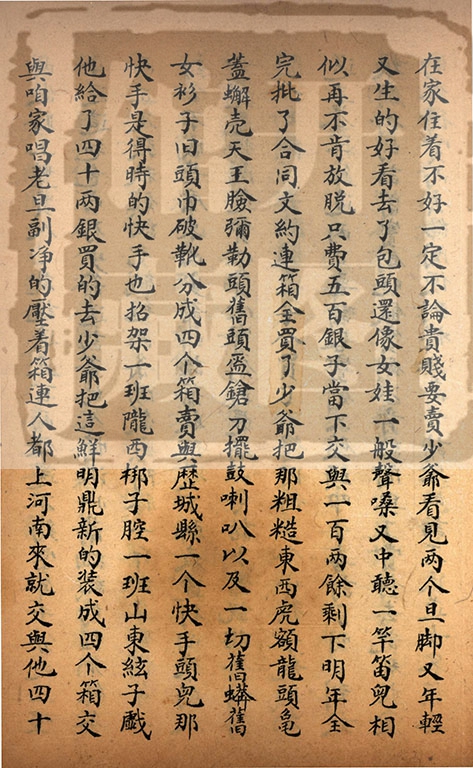 在家住着不好一定不論貴賤要賣少爺看見两个旦脚又年輕
又生的好看去了包頭還像女娃一般聲嗓又中聽一竿笛兒相
似再不肯放脫只費五百銀子當下交與一百两餘剩下明年全
完批了合同文約連箱全買了少爺把那粗糙東西虎額龍頭龟
蓋蠏壳天王臉彌勒頭舊頭盔鎗刀擺鼓喇叭以及一切舊蟒舊
女衫子旧頭巾破靴分成四个箱賣與歴城縣一个快手頭兒那
快手是得時的快手也招架一班隴西梆子腔一班山東絃子戲
他給了四十两銀買的去少爺把這鮮明鼎新的装成四个箱交
與咱家唱老旦副净的壓着箱連人都上河南來就交與他四十